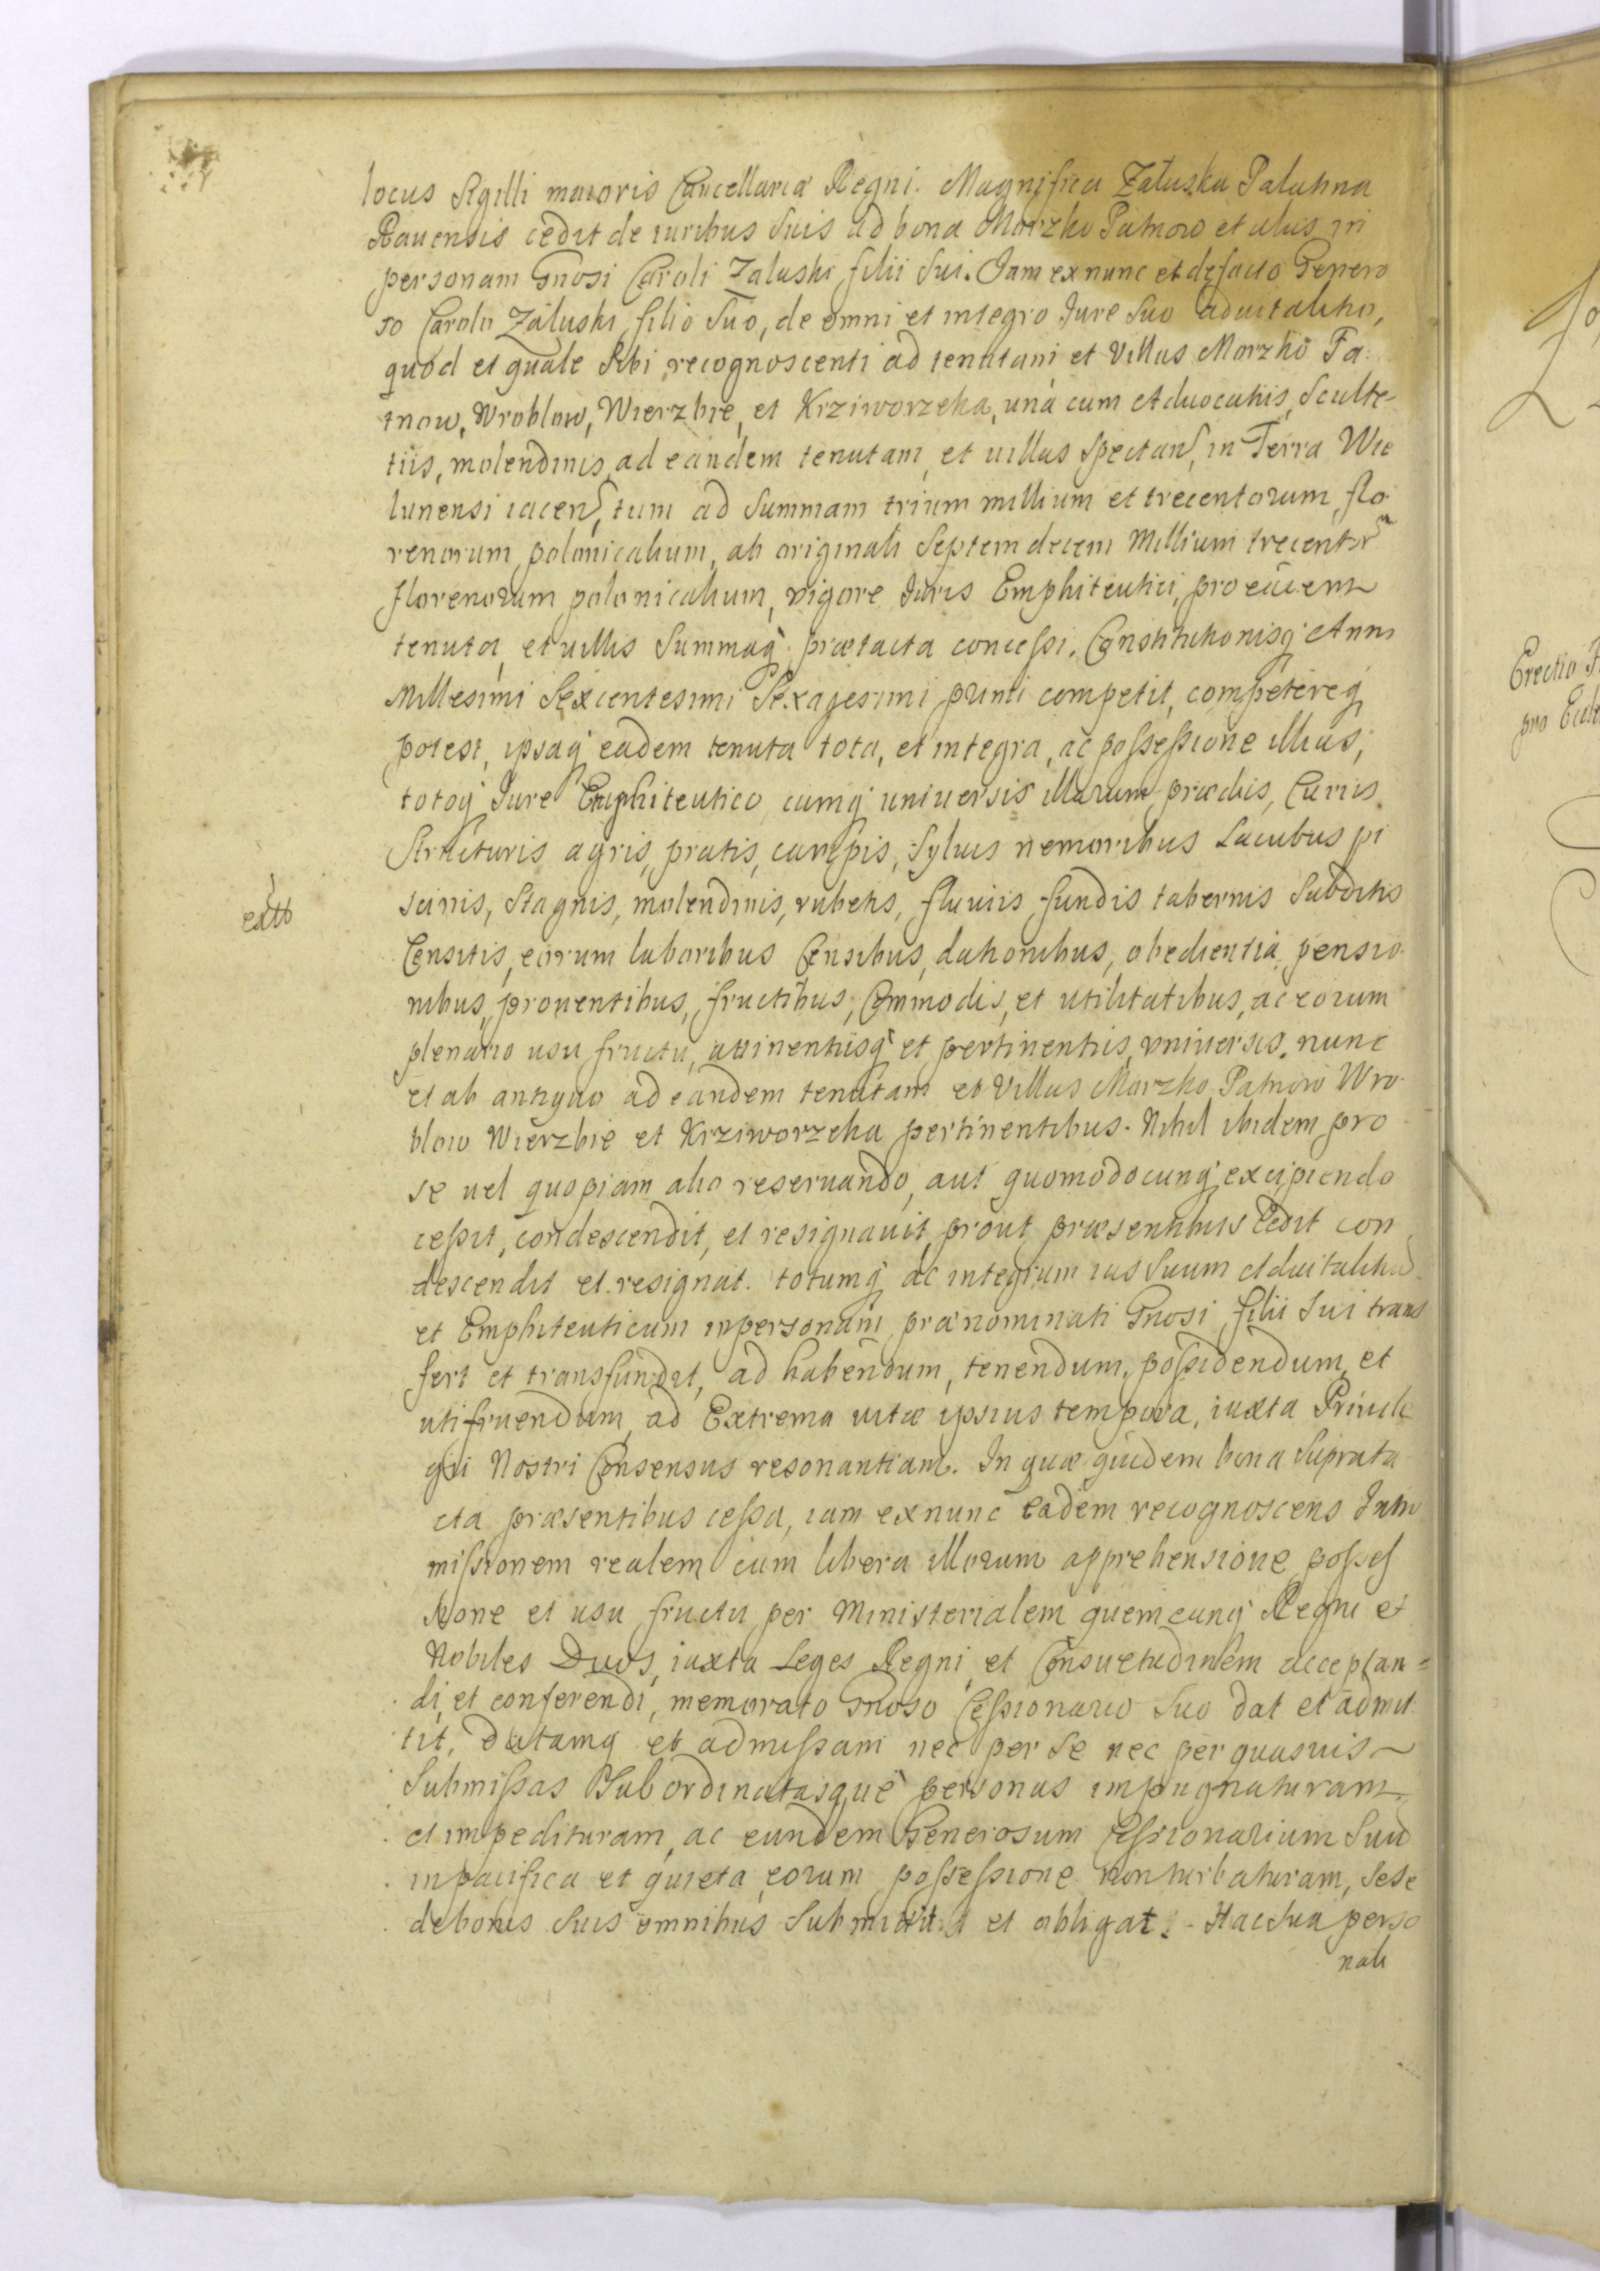 locus Sigilli maioris Cancellariæ Regni. Magnifica Załuska Palatina
Rauensis cedit de iuribus suis ad bona Morzko Patnow et alias in
personam Gnosi Caroli Zaluski filii sui. Jam ex nunc et de facto Genero
so Carolo Załuski, filio suo, de omni et integro Jure suo aduitalitio,
quod et quale sibi recognoscenti ad tenutam et villas Morzko Pa
tnow, Wroblow, Wierzbie, et Krziworzeka, unà cum Aduocatiis, Sculte-
tiis, molendinis ad eandem tenutam, et uillas spectan, in Terra Wie
lunensi iacen, tum ad summam trium millium et trecentorum flo
renorum polonicalium, ab originali septemdecem Millium trecentor
florenorum polonicalium, vigore Juris Emphiteutici, pro eadem
tenuta, et uillis summaq prætacta concessi, Constitutionisq Anni
Millesimi Sexcentesimi Sexagesimi primi competit, competereq
potest, ipsaq eadem tenuta tota, et integra, ac possessione illius,
totoq Jure Emphiteutico, cumq uniuersis illarum prædiis, Curiis
Structuris agris, pratis, campis, syluis nemoribus Lacubus pi
scinis, stagnis, molendinis, rubetis, fluuiis, fundis tabernis subditis
extto
Censitis, eorum laboribus Censibus, dationibus, obedientia, pensio
nibus, prouentibus, fructibus, Commodis, et utilitatibus, ac eorum
plenario usu fructu, attinentiisq et pertinentiis, vniuersis, nunc
et ab antiquo ad eandem tenutam et villas Morzko Patnow Wro
blow Wierzbie et Krziworzeka pertinentibus. Nihil ibidem pro
se uel quopiam alio reseruando, aut quomodocunq excipiendo
cessit, condescendit, et resignauit, prout præsentibus cedit con
descendit et resignat. totumq ac integrum ius suum aduitalitiu
et Emphiteuticum in personam prænominati Gnosi filii sui trans
fert et transfundit, ad habendum, tenendum, possidendum, et
utifruendum, ad Extrema uitæ ipsius tempora, iuxta Priuile
gii Nostri Consensus resonantiam. In quæ quidem bona suprata
cta præsentibus cessa, iam ex nunc eadem recognoscens Intro
missionem realem cum libera illorum apprehensione posses
sione et usu fructu per Ministerialem quemcunq Regni et
Nobiles Duos, iuxta Leges Regni et Consuetudinem acceptan=
di, et conferendi, memorato Gnoso Cessionario suo dat et admit
tit, datamq et admissam nec per se nec per quasuis
submissas subordinatasque personas impugnaturam
et impedituram, ac eundem Generosum Cessionarium suu
in pacifica et quieta eorum possessione non turbaturam, sese
de bonis suis omnibus submittit et obligat. - Hac sua perso
nali
Erectio
pro